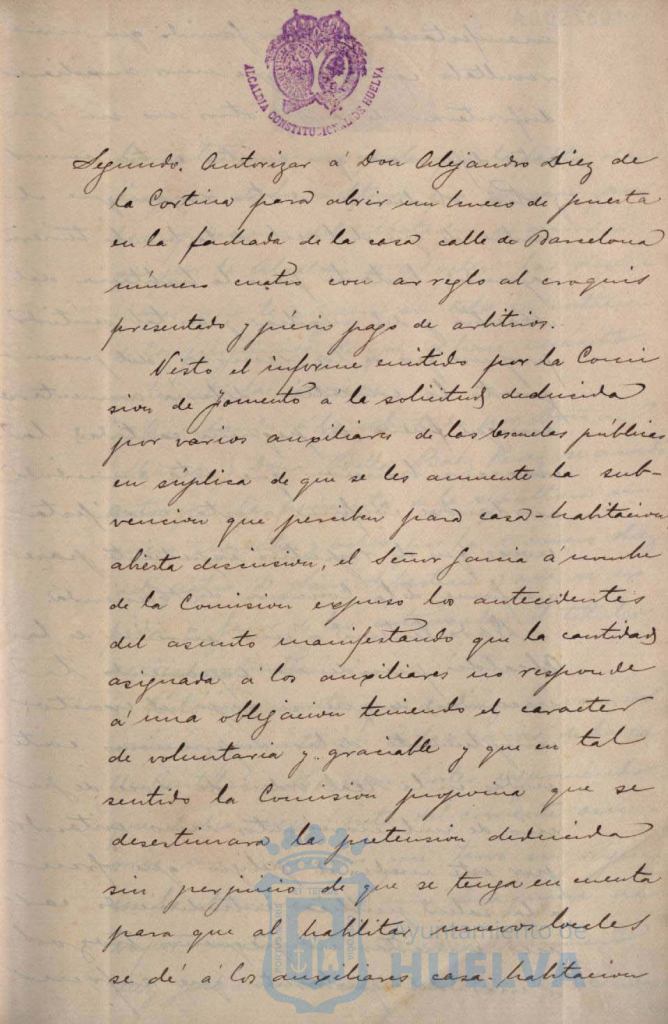 ALCALDIA CONSTITUCIONAL DE HUELVA
Segundo. Autorizar á Don Alejandro Diez de
la Cortina para abrir un hueco de puerta
en la fachada de la casa calle de Barcelona
número cuatro con arreglo al croquis
presentado y prévio pago de arbitrios.
Visto el informe emitido por la Comi
sion de Fomento á la solicitud deducida
por varios auxiliares de las Escuelas públicas
en súplica de que se les aumente la sub-
vencion que perciben para casa-habitacion
abierta discusion, el Señor Garcia á nombre
de la Comision expuso los antecedentes
del asunto manifestando que la cantidad
asignada á los auxiliares no responde
á una obligacion teniendo el caracter
de voluntaria y graciable y que en tal
sentido la Comision proponia que se
desestimara la pretension deducida
sin perjuicio de que se tenga en cuenta
para que al habilitar nuevos locales
se dé á los auxiliares casa habitacion
Ayuntamiento de
HUELVA